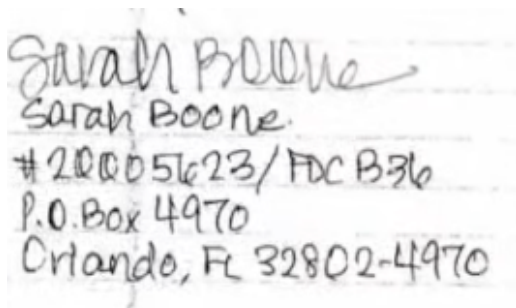 Sarah Boone
Sarah Boone.
#20005623/FDC B36
P.O. Box 4970
Orlando, FL 32802-4970